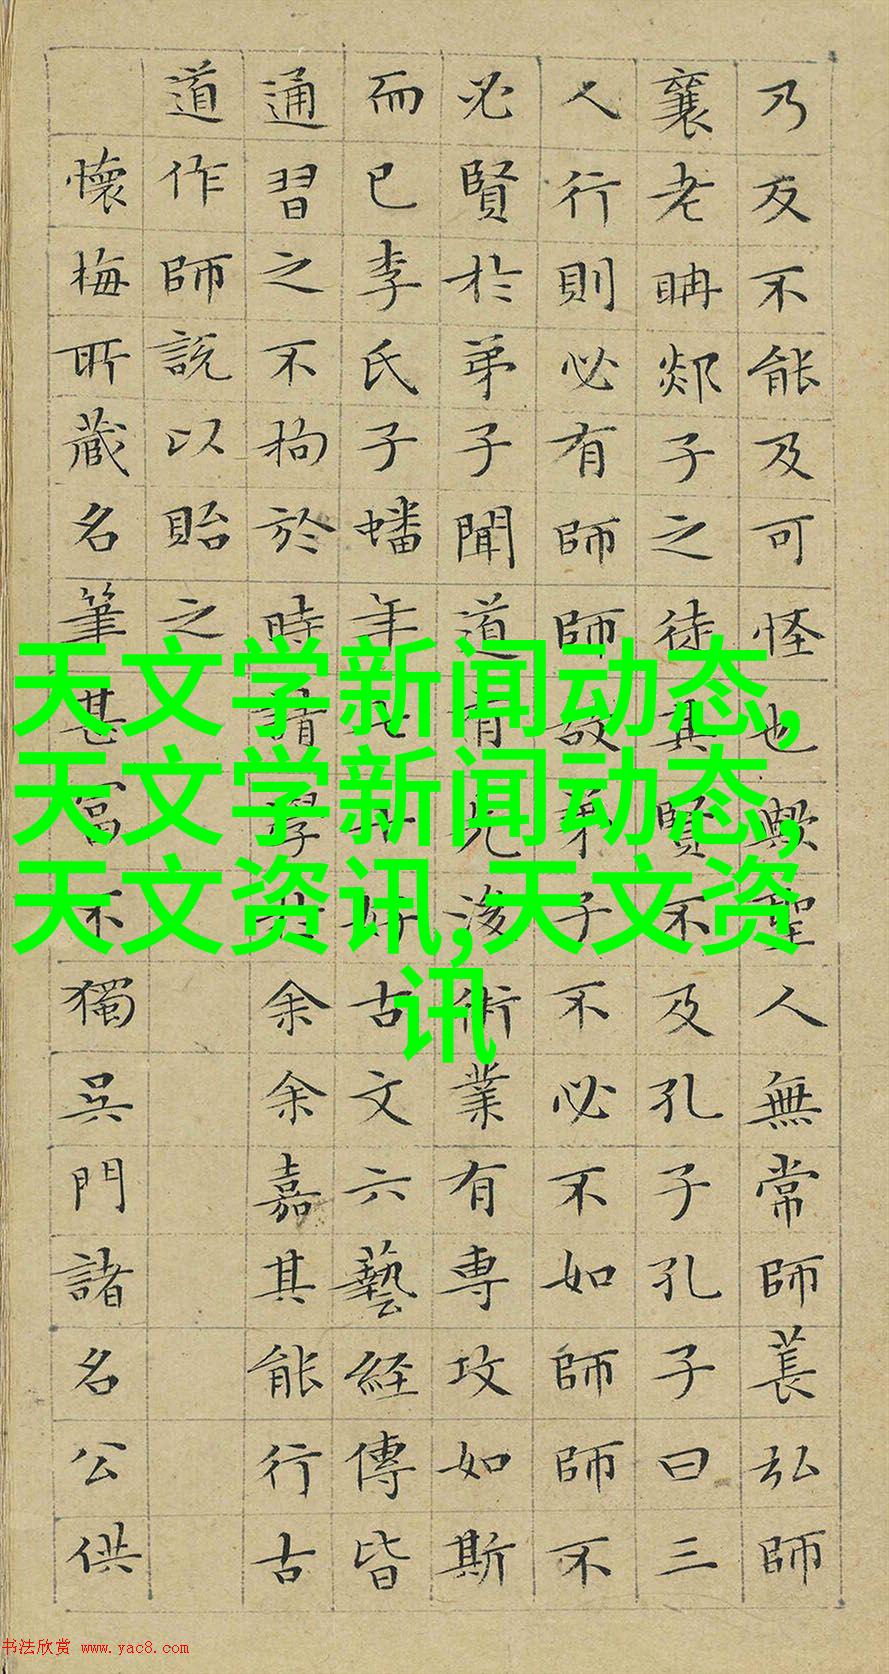 乃反不能及可怪也歟聖人無常師萇弘師
襄老聃郯子之徒其賢不及孔子孔子曰三
人行則必有師師故弟子不必不如師師不
必賢於弟子聞道有先後術業有專攻如斯
而已李氏子蟠年十七好古文六藝経傳皆
通習之不拘於時請學於余余嘉其能行古
道作師說以貽之
懷梅所藏名筆甚富不獨吳門諸名公供
天文学新闻动态,
天文学新闻动态,
天文资讯,天文资
讯
书法欣赏 www.yac8.com